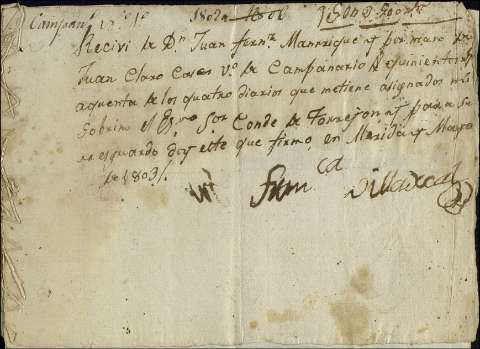 Campan.º
Recivi de Dn Juan Fern.z Manrrique y por mano de
Juan Claro Casas V.º de Campanario quinientos r.s
aquenta de los quatro diarios que me tiene asignados mi
Sobrino el Ex.mo Sor Conde de Torrejon y para su
resguardo doy este que firmo en Merida y Mayo
de 1803
Villarreal